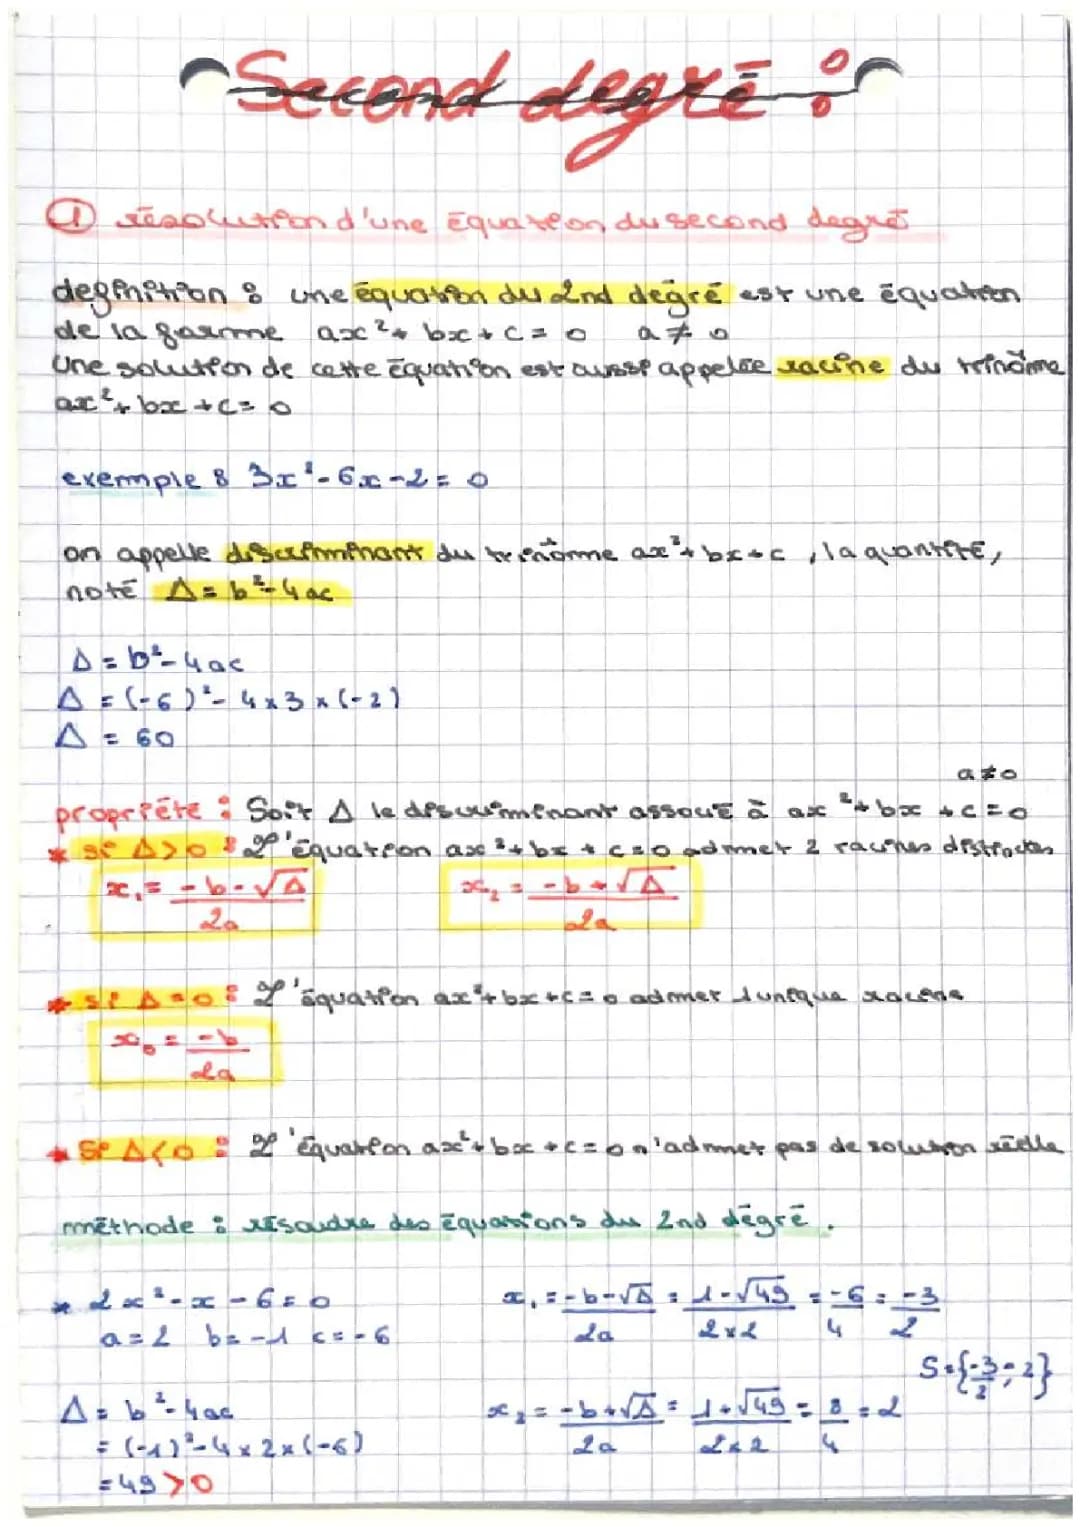 Second degré :
① résolution d'une équation du second degré
definition : une équation du 2nd degré est une équation
de la forme ax² + bx + c = 0 a ≠ 0
Une solution de cette équation est aussi appelée racine du trinôme
ax² + bx + c = 0
exemple : 3x² - 6x - 2 = 0
on appelle discriminant du trinôme ax² + bx + c, la quantité,
noté Δ = b² - 4ac
Δ = b² - 4ac
Δ = (-6)² - 4 x 3 x (-2)
Δ = 60
a ≠ 0
propriété : Soit Δ le discriminant associé à ax² + bx + c = 0
* si Δ > 0 : L'équation ax² + bx + c = 0 admet 2 racines distinctes
x₁ = (-b - √Δ) / 2a x₂ = (-b + √Δ) / 2a
* si Δ = 0 : L'équation ax² + bx + c = 0 admet 1 unique racine
x₀ = -b / 2a
* Si Δ < 0 : L'équation ax² + bx + c = 0 n'admet pas de solution réelle
méthode : résoudre des équations du 2nd degré.
* 2x² - x - 6 = 0
a = 2 b = -1 c = -6
Δ = b² - 4ac
= (-1)² - 4 x 2 x (-6)
= 49 > 0
x₁ = (-b - √Δ) / 2a = (1 - √49) / (2 x 2) = -6 / 4 = -3 / 2
S = {-3/2 ; 2}
x₂ = (-b + √Δ) / 2a = (1 + √49) / (2 x 2) = 8 / 4 = 2